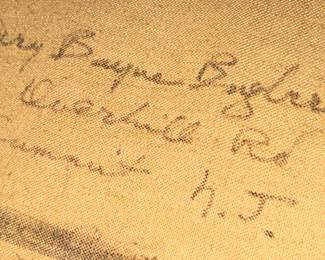 ary Bayne Bugbee
Overhill Rd
Summit N.J.